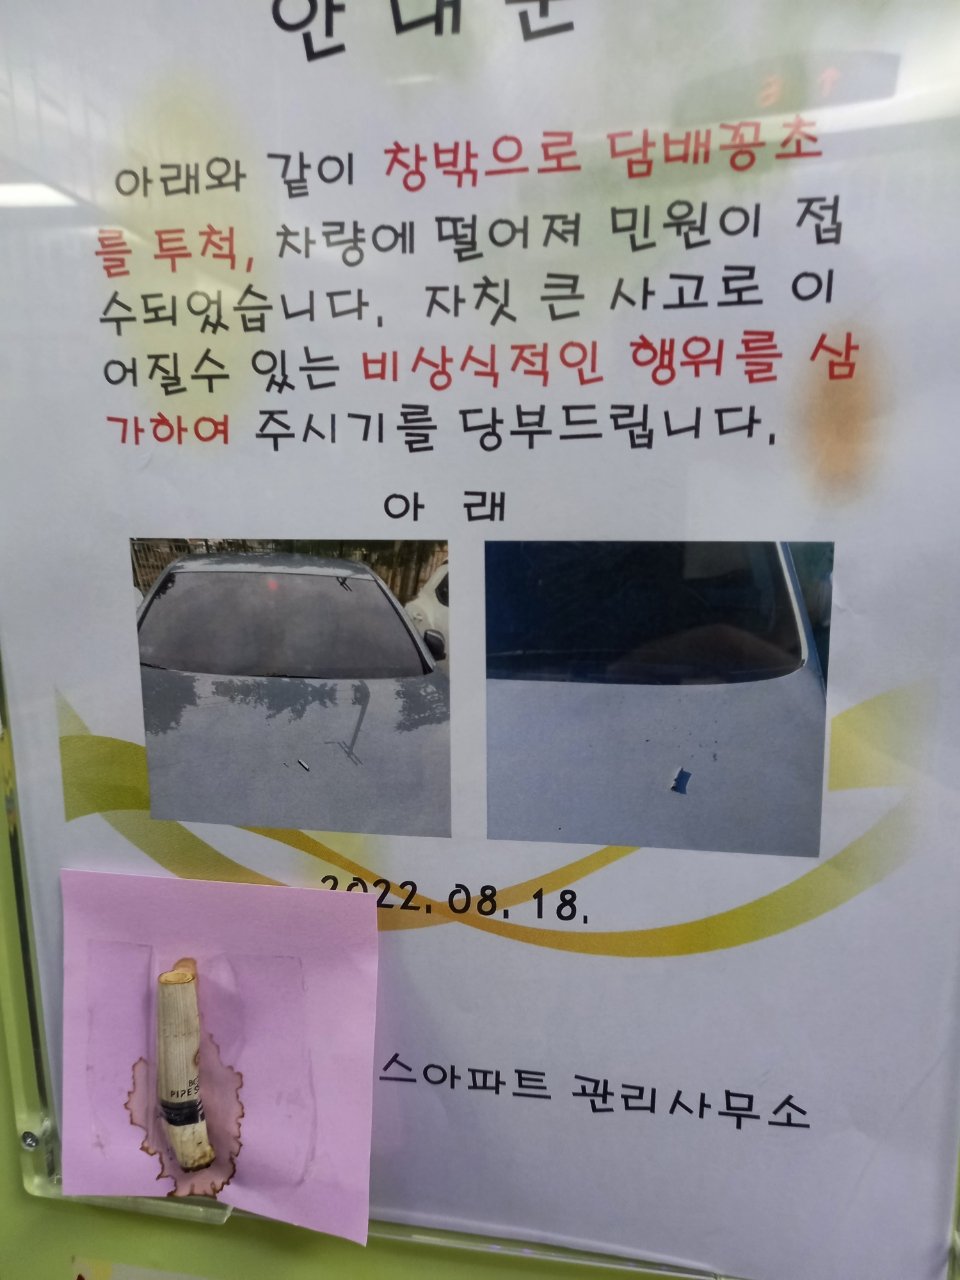 안내문
아래와 같이 창밖으로 담배꽁초
를 투척, 차량에 떨어져 민원이 접
수되었습니다. 자칫 큰 사고로 이
어질수 있는 비상식적인 행위를 삼
가하여 주시기를 당부드립니다.
아 래
2022. 08. 18.
스아파트 관리사무소
PIPES